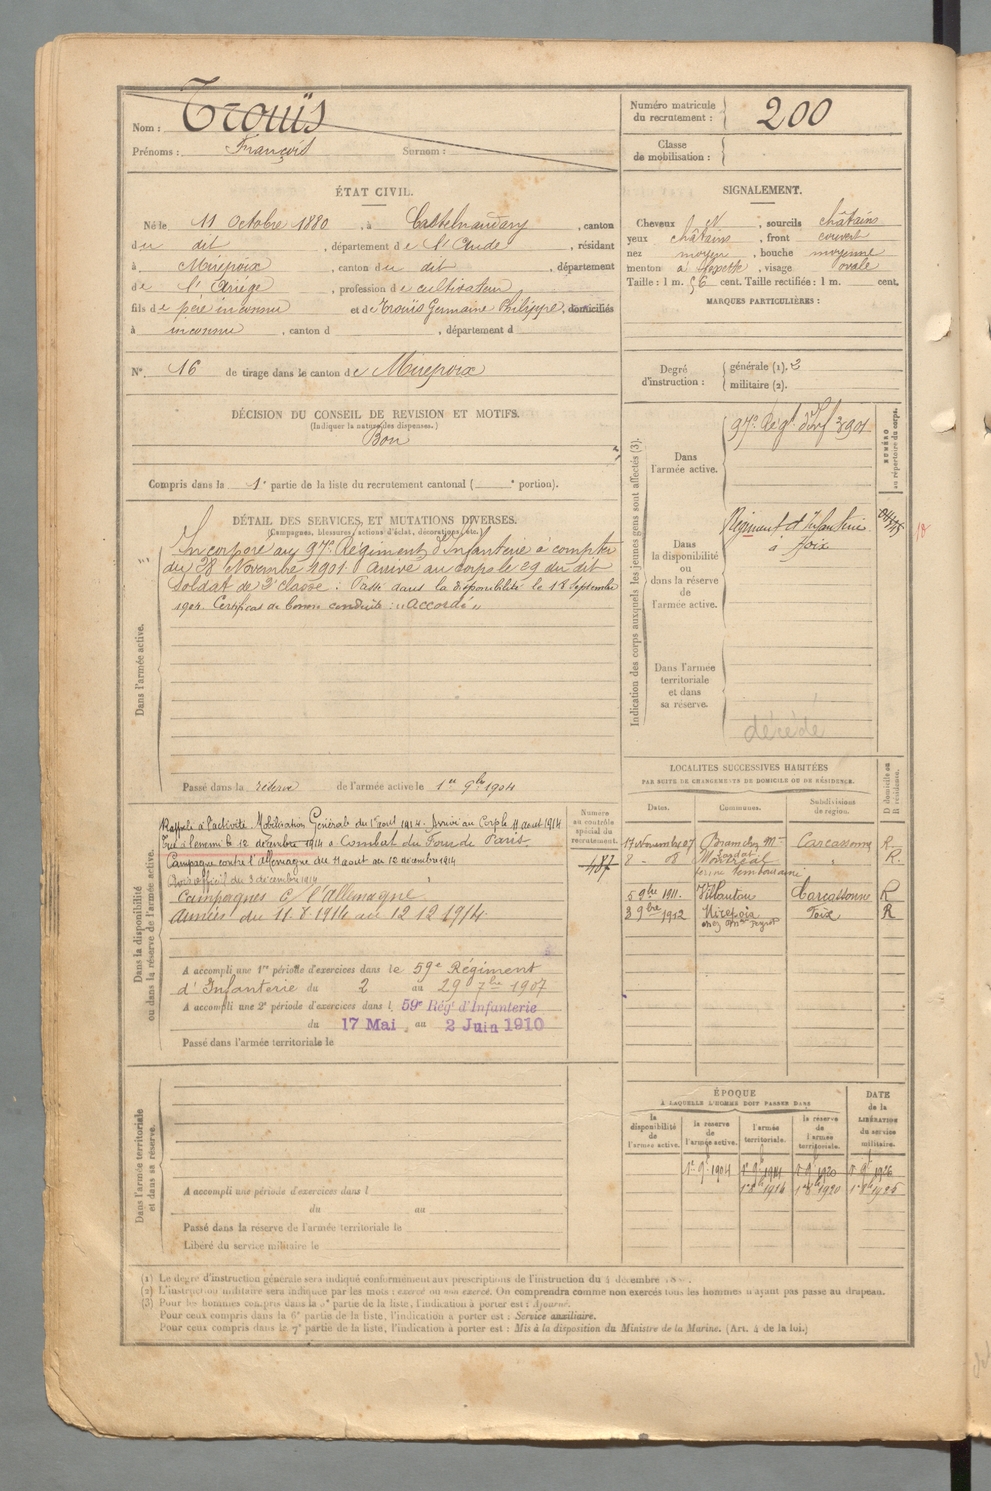 Nom : Trouïs
Prénoms : François Surnom :
Numéro matricule du recrutement : 200
Classe de mobilisation :
ÉTAT CIVIL.
Né le 11 Octobre 1880, à Castelnaudary, canton
du dit, département de l'Aude, résidant
à Mirepoix, canton du dit, département
de l'Ariège, profession de cultivateur
fils de père inconnu et de Trouïs Germaine Philippe, domiciliés
à inconnu, canton d , département d
N° 16 de tirage dans le canton de Mirepoix
DÉCISION DU CONSEIL DE REVISION ET MOTIFS.
(Indiquer la nature des dispenses.)
Bon
Compris dans la 1e partie de la liste du recrutement cantonal ( e portion).
SIGNALEMENT.
Cheveux , sourcils châtains
yeux châtains, front couvert
nez moyen, bouche moyenne
menton à fossette, visage ovale
Taille : 1 m. 56 cent. Taille rectifiée : 1 m. cent.
MARQUES PARTICULIÈRES :
Degré d'instruction : générale (1). 3
militaire (2).
DÉTAIL DES SERVICES, ET MUTATIONS DIVERSES.
(Campagnes, blessures, actions d'éclat, décorations, etc.)
Dans l'armée active.
Incorporé au 97e Régiment d'Infanterie à compter
du 28 Novembre 1901. Arrivé au corps le 29 du dit
Soldat de 2e classe. Passé dans la disponibilité le 18 Septembre
1904. Certificat de bonne conduite : "Accordé"
Passé dans la réserve de l'armée active le 1er 9bre 1904
Indication des corps auxquels les jeunes gens sont affectés (3).
NUMÉRO au répertoire du corps.
Dans l'armée active.
97e Régt d'Inf 3901
Dans la disponibilité ou dans la réserve de l'armée active.
Régiment d'Infanterie
à Foix
Dans l'armée territoriale et dans sa réserve.
décédé
Dans la disponibilité ou dans la réserve de l'armée active.
Rappelé à l'activité. Mobilisation Générale du 1er août 1914. Arrivé au Corps le 11 août 1914
Tué à l'ennemi le 12 décembre 1914 à Combat du Four de Paris
Campagne contre l'Allemagne du 11 août au 12 décembre 1914
Avis officiel du 3 décembre 1914
Campagnes c/ l'Allemagne
Armées du 11.8.1914 au 12.12.1914.
Numéro au contrôle spécial du recrutement.
487
A accompli une 1re période d'exercices dans le 59e Régiment
d'Infanterie du 2 au 29 7bre 1907
A accompli une 2e période d'exercices dans l 59e Régt d'Infanterie
du 17 Mai au 2 Juin 1910
Passé dans l'armée territoriale le
LOCALITÉS SUCCESSIVES HABITÉES
PAR SUITE DE CHANGEMENTS DE DOMICILE OU DE RÉSIDENCE.
Dates. Communes. Subdivisions de région. D domicile ou R résidence.
17 Novembre 07 Bram Carcassonne R
8 - 08 Montréal " R.
5 9bre 1911. Villautou Carcassonne R
3 9bre 1912 Mirepoix Foix R
Dans l'armée territoriale et dans sa réserve.
A accompli une période d'exercices dans l
du au
Passé dans la réserve de l'armée territoriale le
Libéré du service militaire le
ÉPOQUE
À LAQUELLE L'HOMME DOIT PASSER DANS
la disponibilité de l'armée active. la réserve de l'armée active. l'armée territoriale. la réserve de l'armée territoriale. DATE de la LIBÉRATION du service militaire.
1er 9bre 1904 1er 9bre 1914 1er 9bre 1920 1er 9bre 1926
1er 8bre 1914 1er 8bre 1920 1er 8bre 1926
(1) Le degré d'instruction générale sera indiqué conformément aux prescriptions de l'instruction du 4 décembre
(2) L'instruction militaire sera indiquée par les mots : exercé ou non exercé. On comprendra comme non exercés tous les hommes n'ayant pas passé au drapeau.
(3) Pour les hommes compris dans la 5e partie de la liste, l'indication à porter est : Ajourné.
Pour ceux compris dans la 6e partie de la liste, l'indication à porter est : Service auxiliaire.
Pour ceux compris dans la 7e partie de la liste, l'indication à porter est : Mis à la disposition du Ministre de la Marine. (Art. 4 de la loi.)